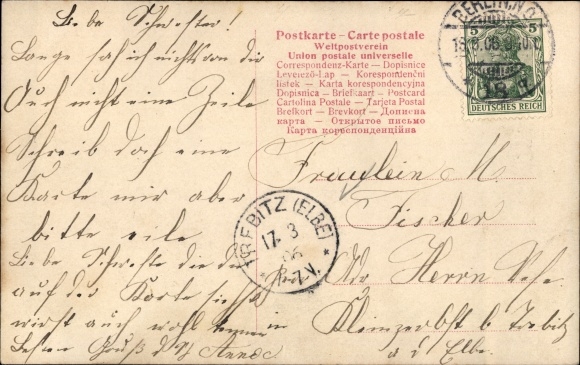 Liebe Schwester!
Lange hab ich nichts von dir
Auch nicht eine Zeile
Schreib doch eine
Karte mir aber
bitte eile
Liebe Schwester die du
auf der Karte siehst
wirst auch wohl kennen
Besten Gruß
Postkarte – Carte postale
Weltpostverein
Union postale universelle
Correspondenz-Karte — Dopisnice
Levelező-Lap — Korespondenční
listek — Karta korespondencyjna
Dopisnica — Briefkaart — Postcard
Cartolina Postale — Tarjeta Postal
Brefkort — Brevkort — Дописна
карта — Открытое письмо
Карта кореспонденційна
BERLIN, N.O.
18
5 5
DEUTSCHES REICH
Fräulein M.
Fischer
Adr Herrn
Kleinzerbst b Trebitz
a d Elbe.
TREBITZ (ELBE)
17. 3
06
7-V.